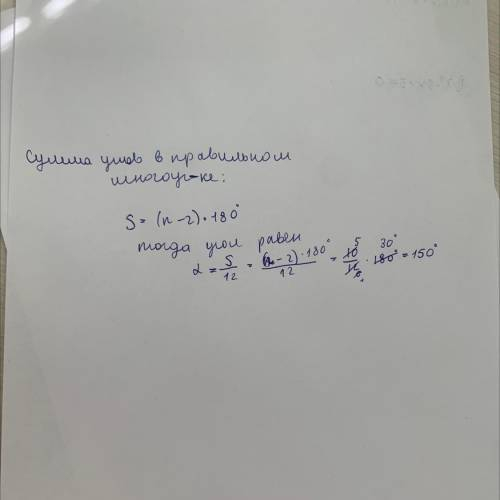 Сумма углов в правильном
многоуг-ке:
S = (n-2)·180°
тогда угол равен
α = S/12 = (n-2)·180°/12 = 10/12 · 180° = 150°
5 30°
6 1